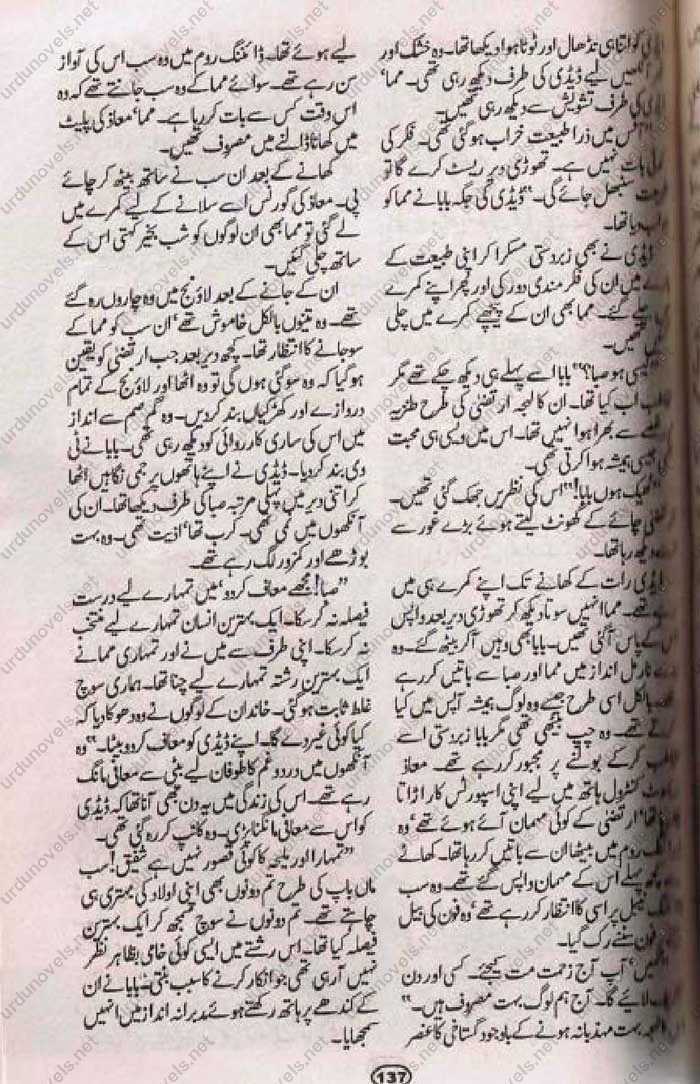 کو اتنا ہی نڈھال اور ٹوٹا ہوا دیکھا تھا۔ وہ خشک اور
لیے ڈیڈی کی طرف دیکھ رہی تھی۔ مما'
کی طرف تشویش سے دیکھ رہی تھیں۔
"آفس میں ذرا طبیعت خراب ہو گئی تھی۔ فکر کی
بات نہیں ہے۔ تھوڑی دیر ریسٹ کرے گا تو
سنبھل جائے گی۔" ڈیڈی کی جگہ بابا نے مما کو
دیا تھا۔
ڈیڈی نے بھی زبردستی مسکرا کر اپنی طبیعت کے
میں ان کی فکر مندی دور کی اور پھر اپنے کمرے
چلے گئے۔ مما بھی ان کے پیچھے کمرے میں چلی
تھیں۔
"کیسی ہو صبا؟" بابا اسے پہلے ہی دیکھ چکے تھے مگر
اب کیا تھا۔ ان کا لہجہ ارتضی کی طرح طنزیہ
سے بھرا ہوا نہیں تھا۔ اس میں ویسی ہی محبت
جیسی ہمیشہ ہوا کرتی تھی۔
"ٹھیک ہوں بابا!" اس کی نظریں جھک گئی تھیں۔
چائے کے گھونٹ لیتے ہوئے بڑے غور سے
دیکھ رہا تھا۔
ڈیڈی رات کے کھانے تک اپنے کمرے ہی میں
تھے۔ مما انہیں سوتا دیکھ کر تھوڑی دیر بعد واپس
کے پاس آ گئی تھیں۔ بابا بھی وہیں آکر بیٹھ گئے۔ وہ
نارمل انداز میں مما اور صبا سے باتیں کر رہے
بالکل اسی طرح جیسے وہ لوگ ہمیشہ آپس میں کیا
تھے۔ وہ چپ بیٹھی تھی مگر بابا زبردستی اسے
کرکے بولنے پر مجبور کر رہے تھے۔ معاذ
کنٹرول ہاتھ میں لیے اپنی اسپورٹس کار اڑاتا
تھا' ارتضی کے کوئی مہمان آئے ہوئے تھے' وہ
روم میں بیٹھا ان سے باتیں کر رہا تھا۔ کھانے
پہلے اس کے مہمان واپس گئے تھے۔ وہ سب
ٹیبل پر اسی کا انتظار کر رہے تھے' وہ فون کی بیل
فون سننے رک گیا۔
آپ آج زحمت مت کیجئے۔ کسی اور دن
لائیے گا۔ آج ہم لوگ بہت مصروف ہیں۔"
بہت مہذبانہ ہونے کے باوجود گستاخی کا عنصر
لیے ہوئے تھا۔ ڈائننگ روم میں وہ سب اس کی آواز
سن رہے تھے۔ سوائے مما کے وہ سب جانتے تھے کہ وہ
اس وقت کس سے بات کر رہا ہے۔ مما' معاذ کی پلیٹ
میں کھانا ڈالنے میں مصروف تھیں۔
کھانے کے بعد ان سب نے ساتھ بیٹھ کر چائے
پی۔ معاذ کی گورنس اسے سلانے کے لیے کمرے میں
لے گئی تو مما بھی ان لوگوں کو شب بخیر کہتی اس کے
ساتھ چلی گئیں۔
ان کے جانے کے بعد لاؤنج میں وہ چاروں رہ گئے
تھے۔ وہ تینوں بالکل خاموش تھے' ان سب کو مما کے
سو جانے کا انتظار تھا۔ کچھ دیر بعد جب ارتضی کو یقین
ہو گیا کہ وہ سو گئی ہوں گی تو وہ اٹھا اور لاؤنج کے تمام
دروازے اور کھڑکیاں بند کر دیں۔ وہ گم صم سے انداز
میں اس کی ساری کارروائی کو دیکھ رہی تھی۔ بابا نے ٹی
وی بند کر دیا۔ ڈیڈی نے اپنے ہاتھوں پر جمی نگاہیں اٹھا
کر اتنی دیر میں پہلی مرتبہ صبا کی طرف دیکھا تھا۔ ان کی
آنکھوں میں نمی تھی۔ کرب تھا' اذیت تھی۔ وہ بہت
بوڑھے اور کمزور لگ رہے تھے۔
"صبا! مجھے معاف کر دو' میں تمہارے لیے درست
فیصلہ نہ کر سکا۔ ایک بہترین انسان تمہارے لیے منتخب
نہ کر سکا۔ اپنی طرف سے میں نے اور تمہاری مما نے
ایک بہترین رشتہ تمہارے لیے چنا تھا۔ ہماری سوچ
غلط ثابت ہو گئی۔ خاندان کے لوگوں نے وہ دھوکا دیا کہ
کیا کوئی غیر دے گا۔ اپنے ڈیڈی کو معاف کر دو بیٹا۔" وہ
آنکھوں میں درد و غم کا طوفان لیے بیٹی سے معافی مانگ
رہے تھے۔ اس کی زندگی میں یہ دن بھی آنا تھا کہ ڈیڈی
کو اس سے معافی مانگنا پڑی۔ وہ کانپ کر رہ گئی تھی۔
"تمہارا اور ملیحہ کا کوئی قصور نہیں ہے شفیق! سب
ماں باپ کی طرح تم دونوں بھی اپنی اولاد کی بہتری ہی
چاہتے تھے۔ تم دونوں نے سوچ سمجھ کر ایک بہترین
فیصلہ کیا تھا۔ اس رشتے میں ایسی کوئی خامی بظاہر نظر
نہیں آ رہی تھی جو انکار کرنے کا سبب بنتی۔" بابا نے ان
کے کندھے پر ہاتھ رکھتے ہوئے مدبرانہ انداز میں انہیں
سمجھایا۔
137
urdunovels.net